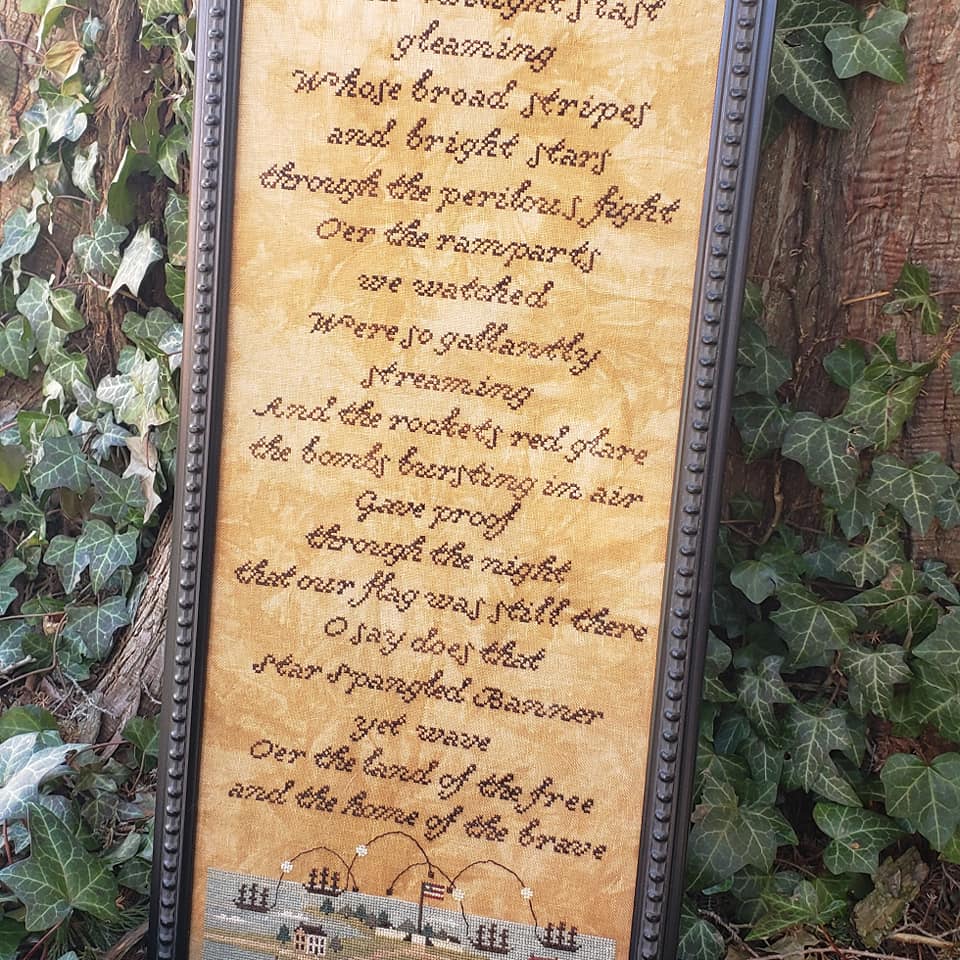 twilights last
gleaming
Whose broad stripes
and bright stars
through the perilous fight
Oer the ramparts
we watched
Were so gallantly
streaming
And the rockets red glare
the bombs bursting in air
Gave proof
through the night
that our flag was still there
O say does that
star spangled Banner
yet wave
Oer the land of the free
and the home of the brave